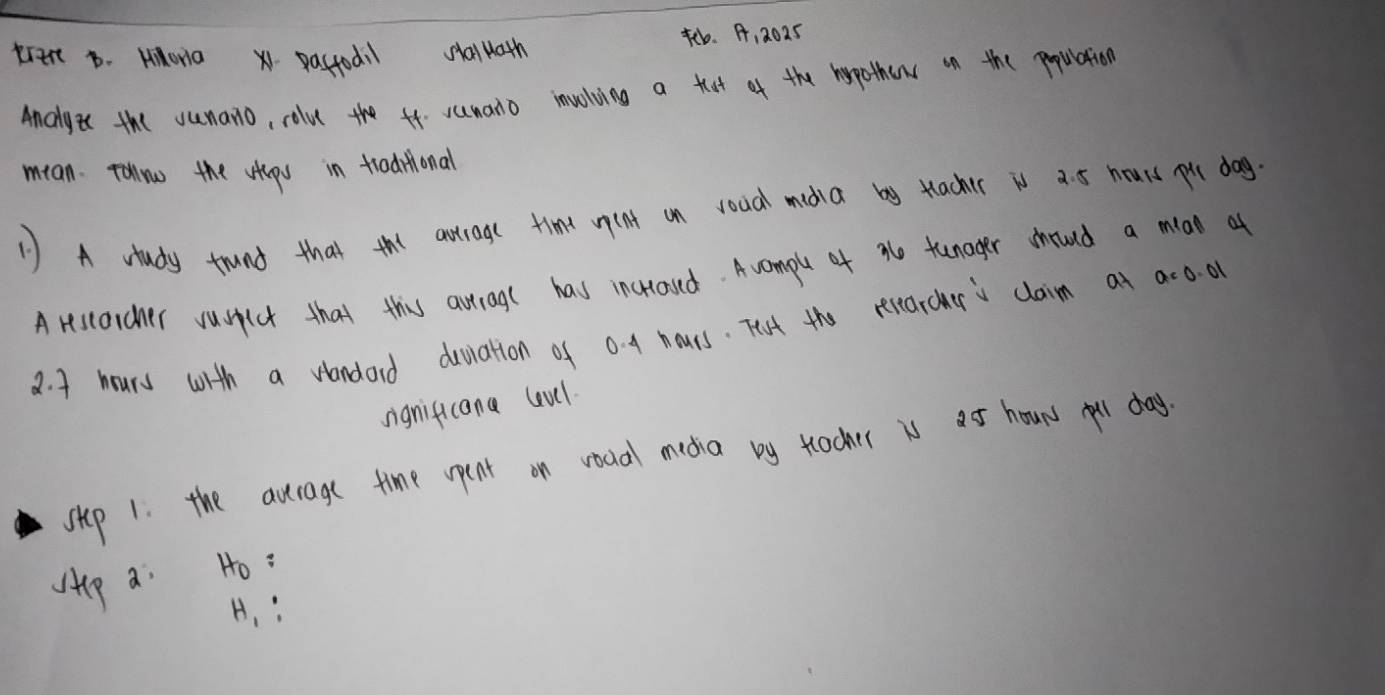 B. Hilloria XI- Daffodil Stat Math Feb. 17, 2025
Analyze the scenario, solve the ff. scenario involving a test of the hypothesis on the population
mean. Follow the steps in traditional
1.) A study found that the average time spent on social media by teacher is 2.5 hours per day.
A researcher suspect that this average has increased. A sample of 36 teenager showed a mean of
2.7 hours with a standard deviation of 0.4 hours. Test the researcher's claim at a=0.01
significance level.
Step 1: The average time spent on social media by teacher is 25 hours per day.
Step 2: H0 :
H1 :